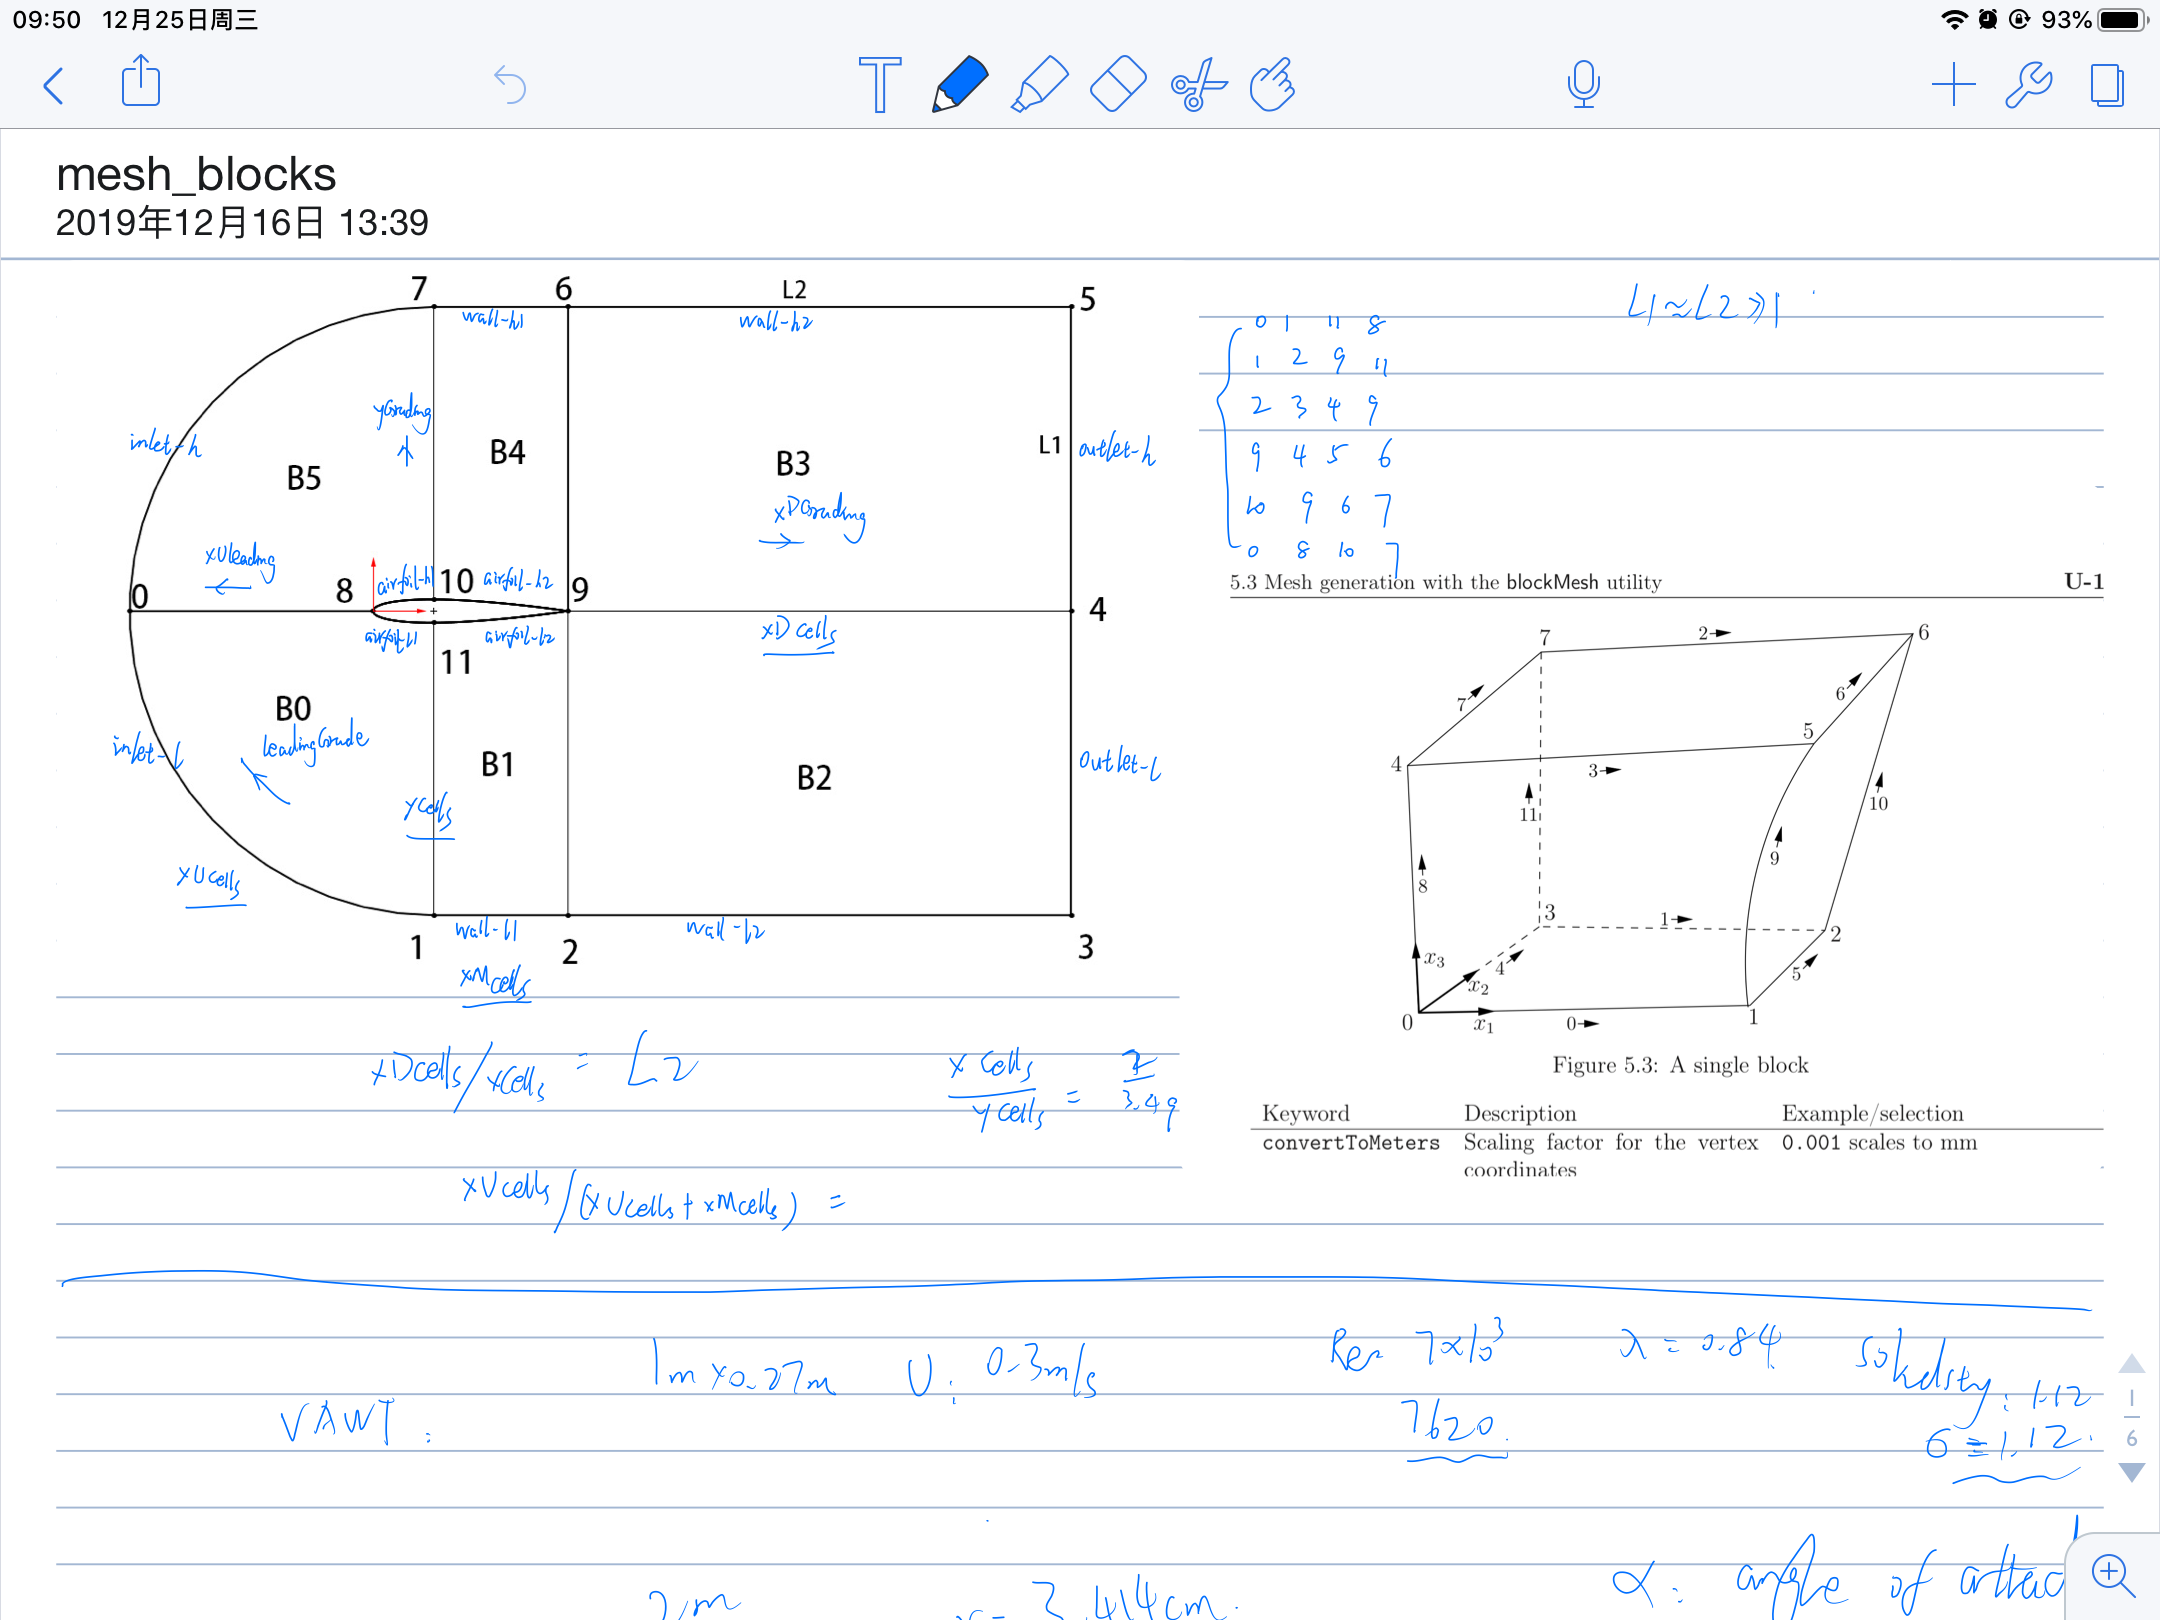 09:50 12月25日周三 93%
mesh_blocks
2019年12月16日 13:39
7 6 L2 5
wall-h1 wall-h2
inlet-h yGrading B5 B4 B3 L1 outlet-h
xDGrading
xUleading
0 8 airfoil-h1 10 airfoil-h2 9 4
airfoil-l1 airfoil-l2 xDcells
11
B0 leadingGrade
inlet-l B1 B2 outlet-l
ycells
xUcells
wall-l1 wall-l2
1 2 3
xMcells
xDcells/xcells = L2
xcells/ycells = 2/3.49
xUcells/(xUcells+xMcells) =
L1≈L2≫1
0 1 11 8
1 2 9 11
2 3 4 9
9 4 5 6
10 9 6 7
0 8 10 7
5.3 Mesh generation with the blockMesh utility U-1
7 2 6
7 6
4 3 5
11 10
8 9
3 1 2
x3 4 5
x2
0 x1 0 1
Figure 5.3: A single block
Keyword Description Example/selection
convertToMeters Scaling factor for the vertex 0.001 scales to mm
coordinates
VAWT: 1m×0.27m U: 0.3m/s Re= 7×10³ λ=0.84
7620. : 1.12
σ=1.12.
1
6
2m = 3.414cm. α: angle of